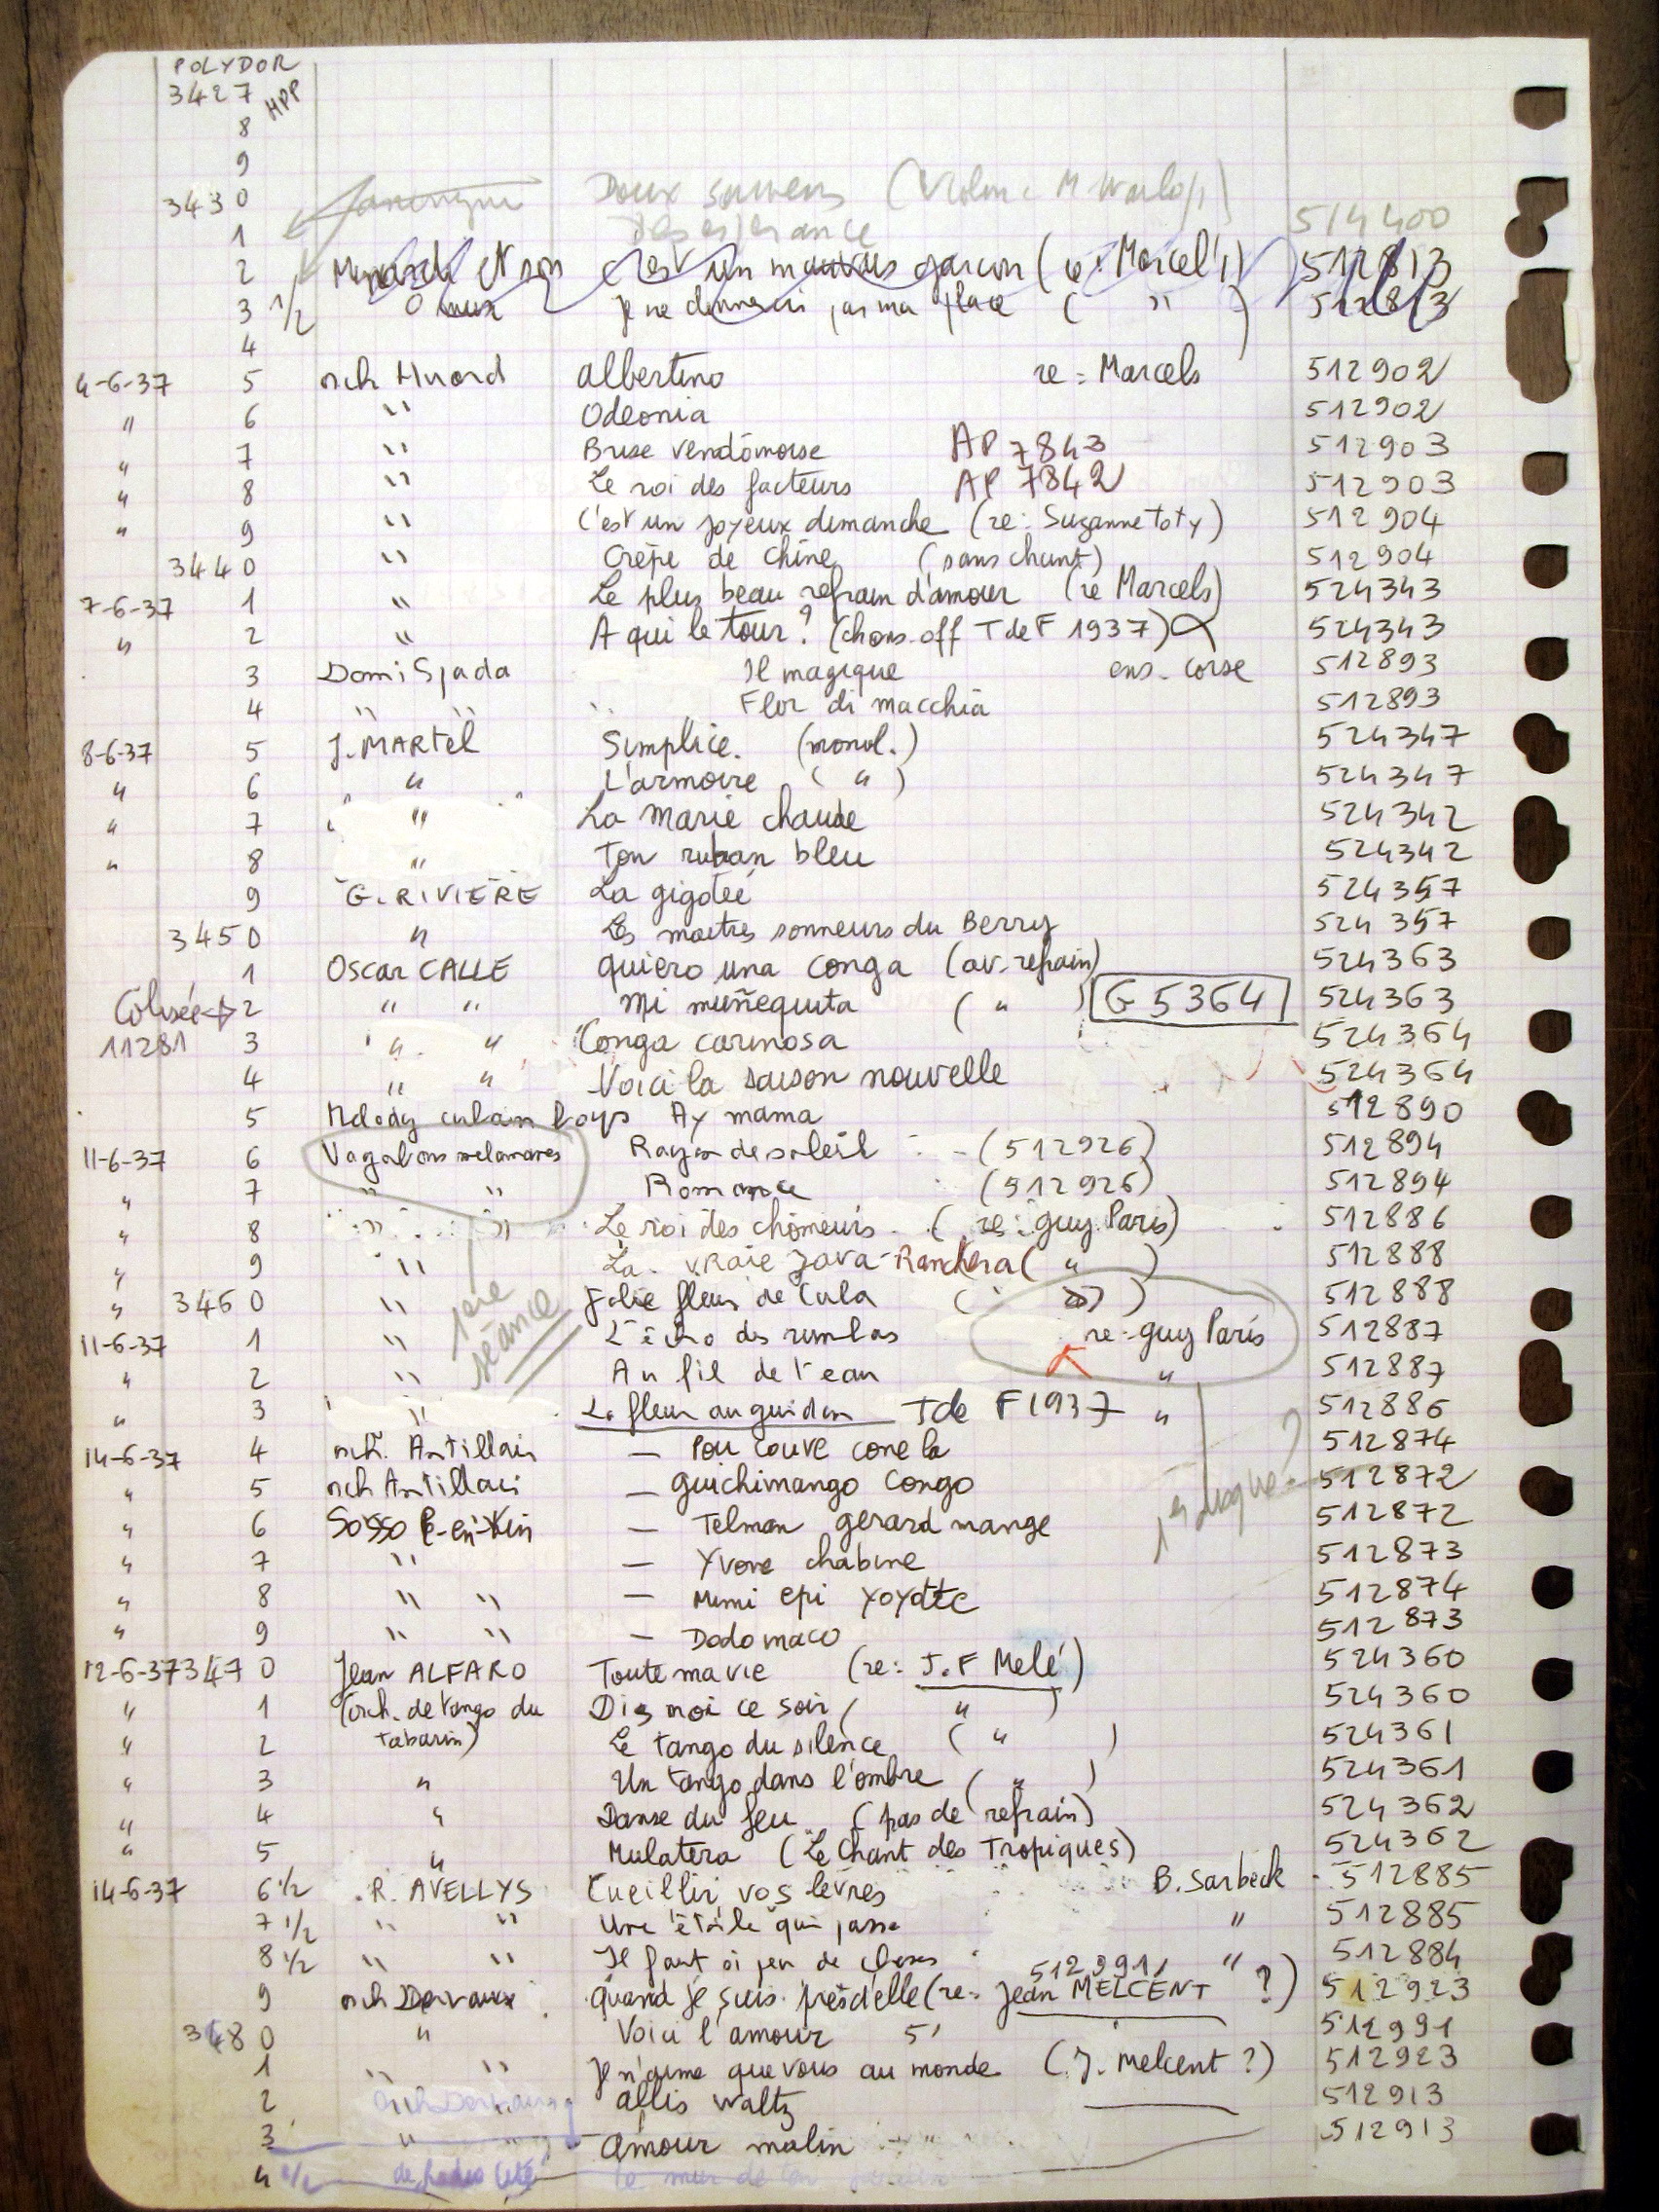 POLYDOR
3427 HPP
8
9
3430 Doux (Violon: M Warlop) 514400
1
2 1/2 et son C'est un mauvais garçon (re: Marcel's) 512813
3 1/2 Je ne donnerais pas ma place ( " ) 512813
4
4-6-37 5 orch Huard Albertino re: Marcels 512902
" 6 " Odeonia 512902
" 7 " Brise vendômoise AP 7843 512903
" 8 " Le roi des facteurs AP 7842 512903
" 9 " C'est un joyeux dimanche (re: Suzanne Toty) 512904
3440 " Crèpe de chine (sans chant) 512904
7-6-37 1 " Le plus beau refrain d'amour (re Marcels) 524343
" 2 " A qui le tour? (chans. off T de F 1937) 524343
3 Domi Spada Il magique ens. corse 512893
4 " " Flor di macchia 512893
8-6-37 5 J. MARTEL Simplice. (monol.) 524347
" 6 " L'armoire ( " ) 524347
" 7 " La Marie chaude 524342
" 8 " Ton ruban bleu 524342
9 G. RIVIERE La gigotée 524357
3450 " Les maitres sonneurs du Berry 524357
1 Oscar CALLE quiero una conga (av. refrain) 524363
Colisée 2 " " Mi muñequita ( " ) G 5364 524363
11281 3 " " Conga carinosa 524364
4 " " Voici la saison nouvelle 524364
5 Melody cuban boys Ay mama 512890
11-6-37 6 Vagabons melomanes Rayon de soleil (512926) 512894
" 7 " " Romance (512926) 512894
" 8 " " Le roi des chômeurs (re: guy Paris) 512886
" 9 " La vraie java - Ranchera ( " ) 512888
" 3460 " Jolie fleur de Cuba ( " ) 512888
1ere séance
11-6-37 1 " L'écho des rumbas re: guy Paris 512887
" 2 " Au fil de l'eau " 512887
" 3 " La fleur au guidon T de F 1937 " 512886
14-6-37 4 orch. Antillais — Pou couve cone la 512874
" 5 orch Antillais — guichimango Congo 512872
1er disque?
" 6 Sosso Pé-en-Kin — Telman gerard mange 512872
" 7 " — Yvone chabine 512873
" 8 " " — Mimi epi yoyotte 512874
" 9 " " — Dodo maco 512873
12-6-37 3470 Jean ALFARO Toute ma vie (re: J.F Melé) 524360
" 1 (orch. de tango du Dis moi ce soir ( " ) 524360
" 2 Tabarin) Le tango du silence ( " ) 524361
" 3 " Un tango dans l'ombre ( " ) 524361
" 4 " Danse du feu (pas de refrain) 524362
" 5 " Mulatera (Le Chant des Tropiques) 524362
14-6-37 6 1/2 R. AVELLYS Cueillir vos lèvres B. Sarbeck 512885
7 1/2 " " Une étoile qui passe " 512885
8 1/2 " " Il faut si peu de choses " 512884
512991
9 orch Dervaux quand je suis près d'elle (re: Jean MELCENT ?) 512923
3480 " Voici l'amour 5' 512991
1 " " Je n'aime que vous au monde (J. Melcent ?) 512923
2 " " Allis waltz 512913
3 " " Amour malin 512913
4 1/2